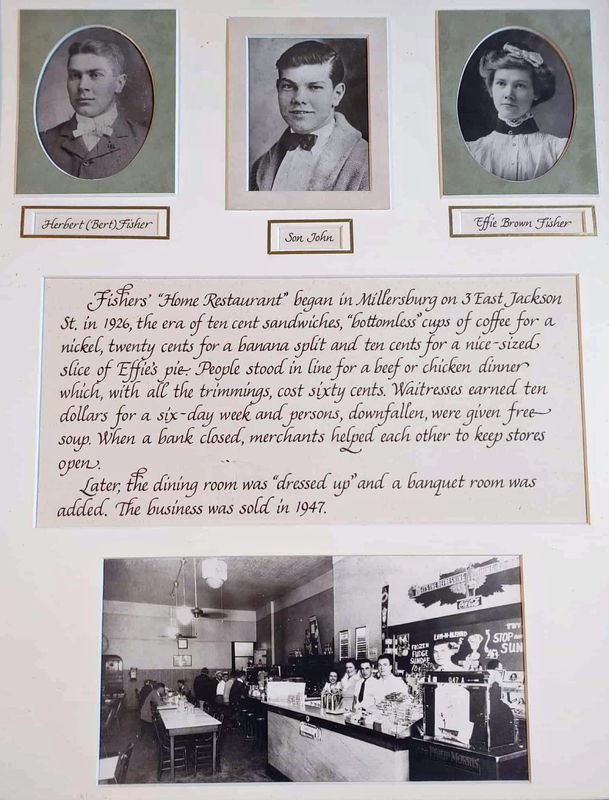 Herbert (Bert) Fisher
Son John
Effie Brown Fisher
Fishers' "Home Restaurant" began in Millersburg on 3 East Jackson
St. in 1926, the era of ten cent sandwiches, "bottomless" cups of coffee for a
nickel, twenty cents for a banana split and ten cents for a nice-sized
slice of Effie's pie. People stood in line for a beef or chicken dinner
which, with all the trimmings, cost sixty cents. Waitresses earned ten
dollars for a six-day week and persons, downfallen, were given free
soup. When a bank closed, merchants helped each other to keep stores
open.
Later, the dining room was "dressed up" and a banquet room was
added. The business was sold in 1947.
FROZEN
FUDGE
SUNDAE
TRY
STOP
SUN
PHILIP MORRIS